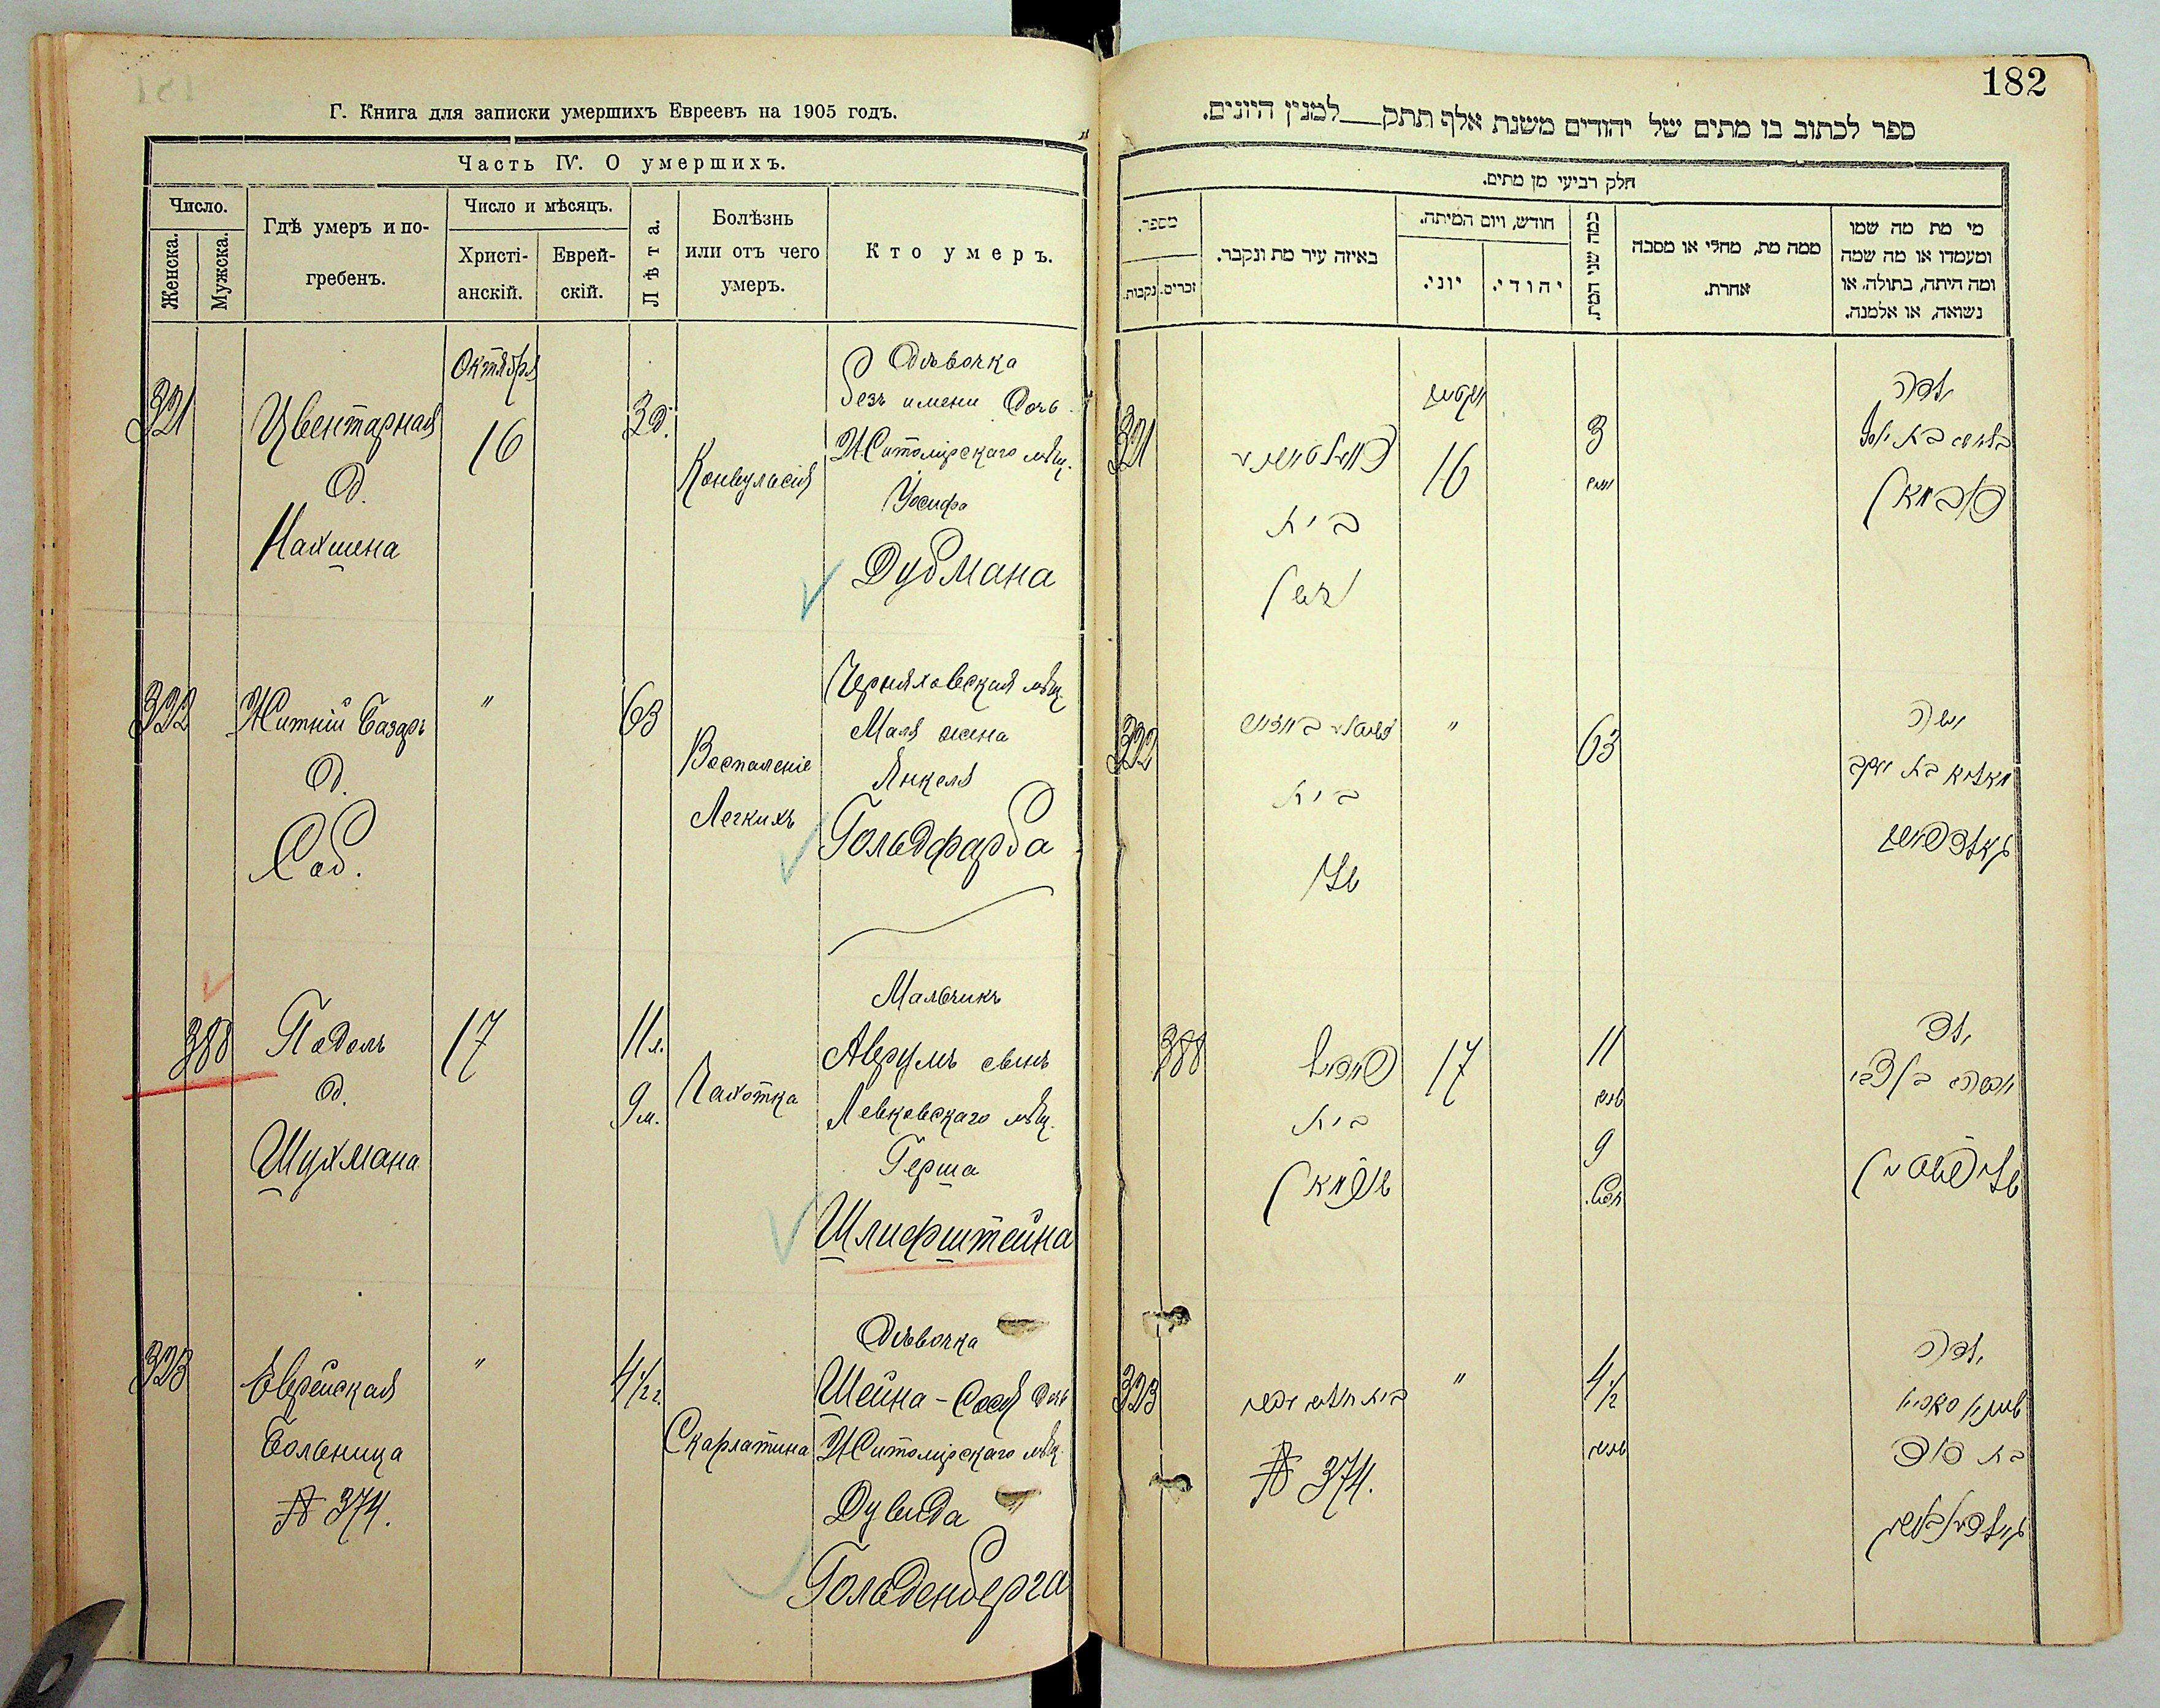 Г. Книга для записки умершихъ Евреевъ на 1905 годъ.
Часть IV. О умершихъ.
Число.
Женска.
Мужска.
Гдѣ умеръ и по-
гребенъ.
Число и мѣсяцъ.
Христі-
анскій.
Еврей-
скій.
Лѣта.
Болѣзнь
или отъ чего
умеръ.
Кто умеръ.
321
Цвентарная
д.
Нахшена
Октября
16
3 д.
Конвульсія
Дѣвочка
безъ имени дочь
Житомірскаго мѣщ.
Іосифа
Дубмана
322
Житній базаръ
д.
Саб.
"
63
Воспаленіе
Легкихъ
Черняховская мѣщ.
Маля жена
Янкеля
Гольдфарба
388
Подолъ
д.
Шухмана
17
11 л.
9 м.
Чахотка
Мальчикъ
Аврумъ сынъ
Левковскаго мѣщ.
Герша
Шлифштейна
323
Еврейская
больница
№ 374.
"
4 1/2 г.
Скарлатина
Дѣвочка
Шейна-Сося дочь
Житомірскаго мѣщ.
Дувида
Гольденберга
182
ספר לכתוב בו מתים של יהודים משנת אלף תתק__למנין היונים.
חלק רביעי מן מתים.
מספר.
זכרים.
נקבות.
באיזה עיר מת ונקבר.
חודש, ויום המיתה.
יוני.
יהודי.
כמה שני המת.
ממה מת, מחלי או מסבה
אחרת.
מי מת מה שמו
ומעמדו או מה שמה
ומה היתה, בתולה, או
נשואה, או אלמנה.
321
בית
16
3
ילדה
322
בית
"
63
אשה
גאלדפארב
388
פאדאל
בית
שוחמאן
17
11
9
ילד
שליפשטיין
323
№ 374.
"
4 1/2
ילדה
בת דוד
גאלדענבערג